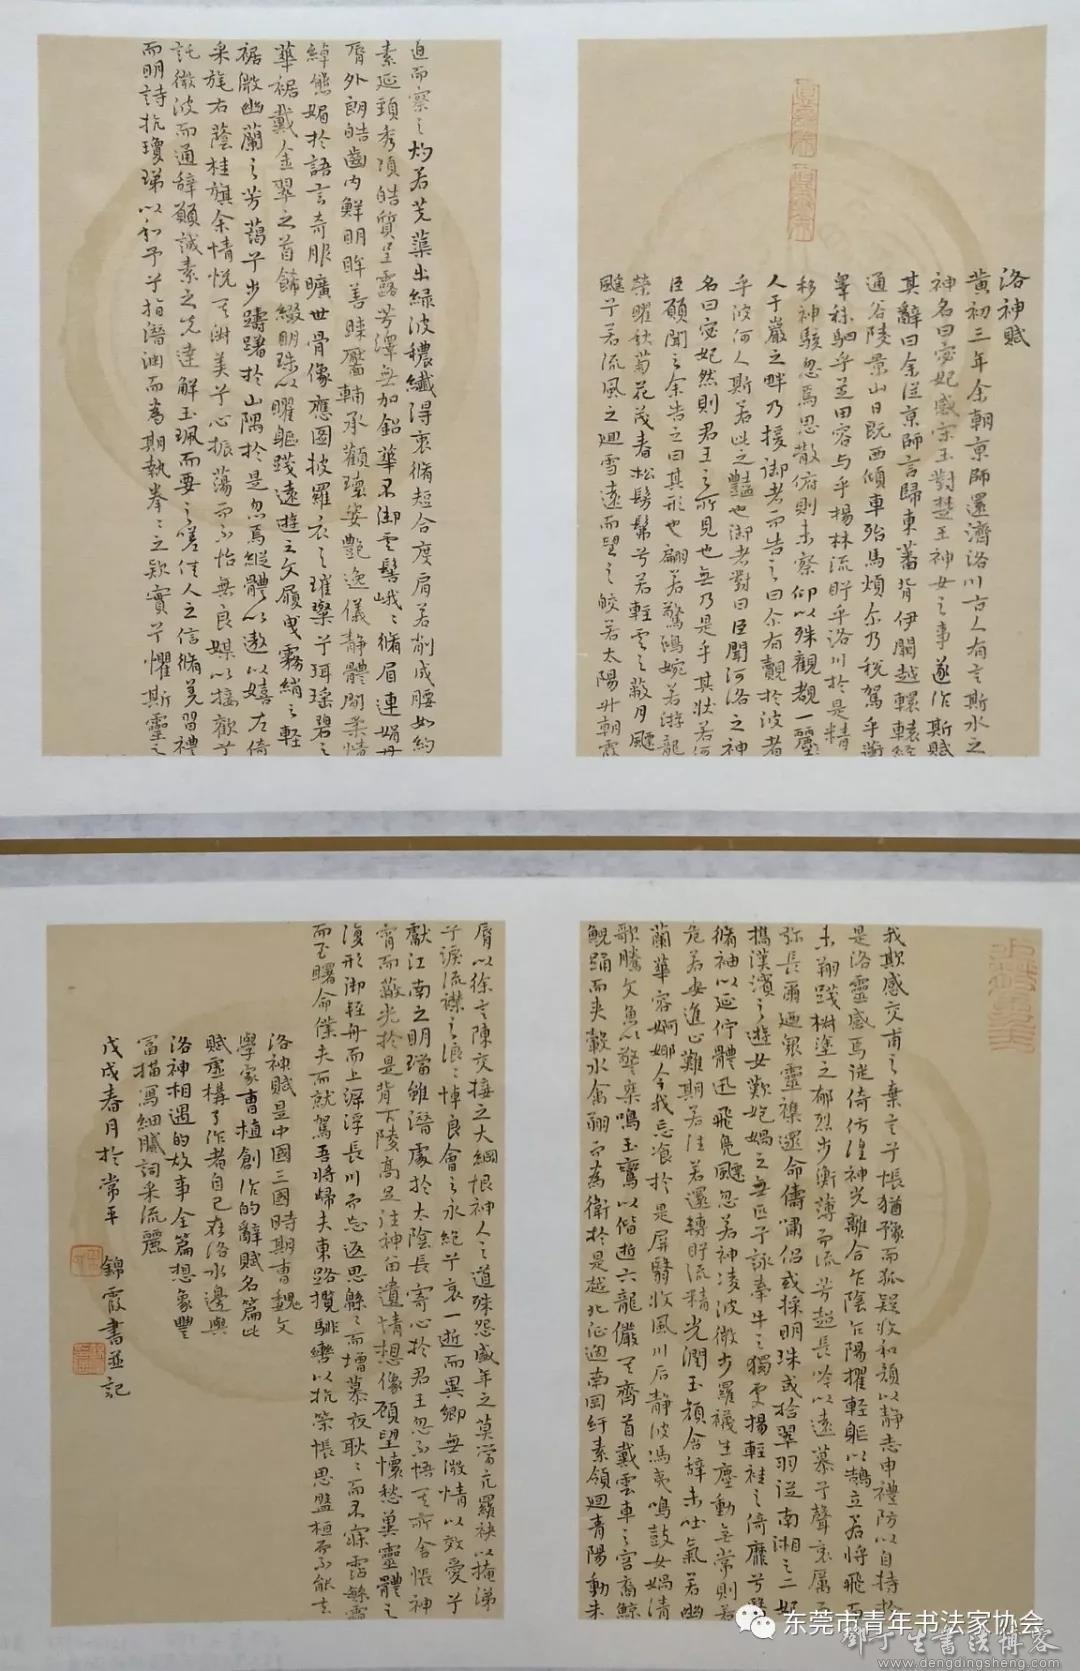 洛神賦
黄初三年余朝京師還濟洛川古人有言斯水之
神名曰宓妃感宋玉對楚王神女之事遂作斯賦
其辭曰余從京師言歸東藩背伊闕越轘轅經
通谷陵景山日既西傾車殆馬煩尔乃稅駕乎蘅
皋秣駟乎芝田容与乎楊林流眄乎洛川於是精
移神駭忽焉思散俯則未察仰以殊觀覩一麗
人于巖之畔乃援御者而告之曰尔有覿於波者
乎波何人斯若此之豔也御者對曰臣聞河洛之神
名曰宓妃然則君王之所見也無乃是乎其狀若何
臣願聞之余告之曰其形也翩若驚鴻婉若游龍
榮曜秋菊花茂春松髣髴兮若輕雲之蔽月飄
飖兮若流風之迴雪遠而望之皎若太陽升朝霞
迫而察之灼若芙蕖出綠波穠纖得衷脩短合度肩若削成腰如約
素延頸秀項皓質呈露芳澤無加鉛華不御雲髻峨〻脩眉連娟丹
脣外朗皓齒內鮮明眸善睞靨輔承顴瓌姿艷逸儀靜體閑柔情
綽態媚於語言奇服曠世骨像應圖披羅衣之璀粲兮珥瑤碧之
華裾戴金翠之首飾綴明珠以曜軀踐遠遊之文履曳霧綃之輕
裾微幽蘭之芳藹兮步躊躇於山隅於是忽焉縱體以遨以嬉左倚
采旄右蔭桂旗余情悅其淑美兮心振蕩而不怡無良媒以接歡兮
託微波而通辭願誠素之先達解玉珮而要之嗟佳人之信脩羌習禮
而明詩抗瓊珶以和予兮指潛淵而為期執拳〻之款實兮懼斯靈之
我欺感交甫之棄言兮悵猶豫而狐疑收和顏以靜志申禮防以自持於
是洛靈感焉徙倚彷徨神光離合乍陰乍陽擢輕軀以鵠立若將飛而
未翔踐椒塗之郁烈步衡薄而流芳超長吟以遠慕兮聲哀厲而
弥長爾迺衆靈襍遝命儔嘯侶或採明珠或拾翠羽從南湘之二妃
攜漢濱之遊女歎匏媧之無匹兮詠牽牛之獨處揚輕袿之倚靡兮翳
脩袖以延佇體迅飛鳧飄忽若神凌波微步羅襪生塵動無常則若
危若安進止難期若往若還轉眄流精光潤玉顏含辭未吐氣若幽
蘭華容婀娜令我忘飡於是屏翳收風川后靜波馮夷鳴鼓女媧清
歌騰文魚以警乘鳴玉鸞以偕逝六龍儼其齊首戴雲車之容裔鯨
鯢踊而夾轂水禽翔而為衛於是越北沚過南岡紆素領迴青陽動朱
脣以徐言陳交接之大綱恨神人之道殊怨盛年之莫當亢羅袂以掩涕
兮淚流襟之浪〻悼良會之永絕兮哀一逝而異鄉無微情以效愛兮
獻江南之明璫雖潛處於太陰長寄心於君王忽不悟其所舍悵神
宵而蔽光於是背下陵高足往神留遺情想像顧望懷愁冀靈體之
復形御輕舟而上泝浮長川而忘返思緜〻而增慕夜耿〻而不寐霑繁霜
而至曙命僕夫而就駕吾將歸夫東路攬騑轡以抗策悵思盤桓而不能去
洛神賦是中國三國時期曹魏文
學家曹植創作的辭賦名篇此
賦虛構了作者自己在洛水邊與
洛神相遇的故事全篇想象豐
富描寫細膩詞采流麗
戊戌春月於常平 錦霞書並記
东莞市青年书法家协会
邓丁生书法博客
www.dengdingsheng.com